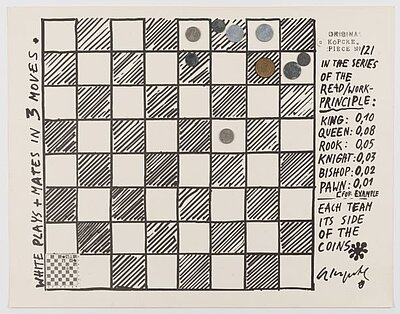 WHITE PLAYS + MATES IN 3 MOVES.
ORIGINAL
KOPCKE,
PIECE No 121
IN THE SERIES
OF THE
READ/WORK-
PRINCIPLE:
KING: 0,10
QUEEN: 0,08
ROOK: 0,05
KNIGHT: 0,03
BISHOP: 0,02
PAWN: 0,01
(FOR EXAMPLE
EACH TEAM
ITS SIDE
OF THE
COINS